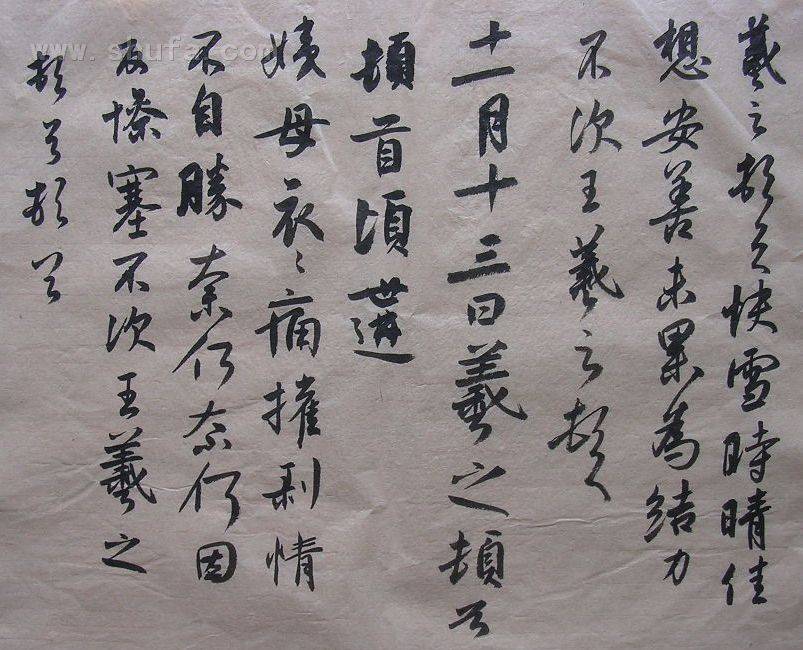 羲之頓首快雪時晴佳
想安善未果為結力
不次王羲之頓首
十一月十三日羲之頓首
頓首頃遘
姨母哀〻痛摧剝情
不自勝奈何奈何因
反慘塞不次王羲之
頓首頓首